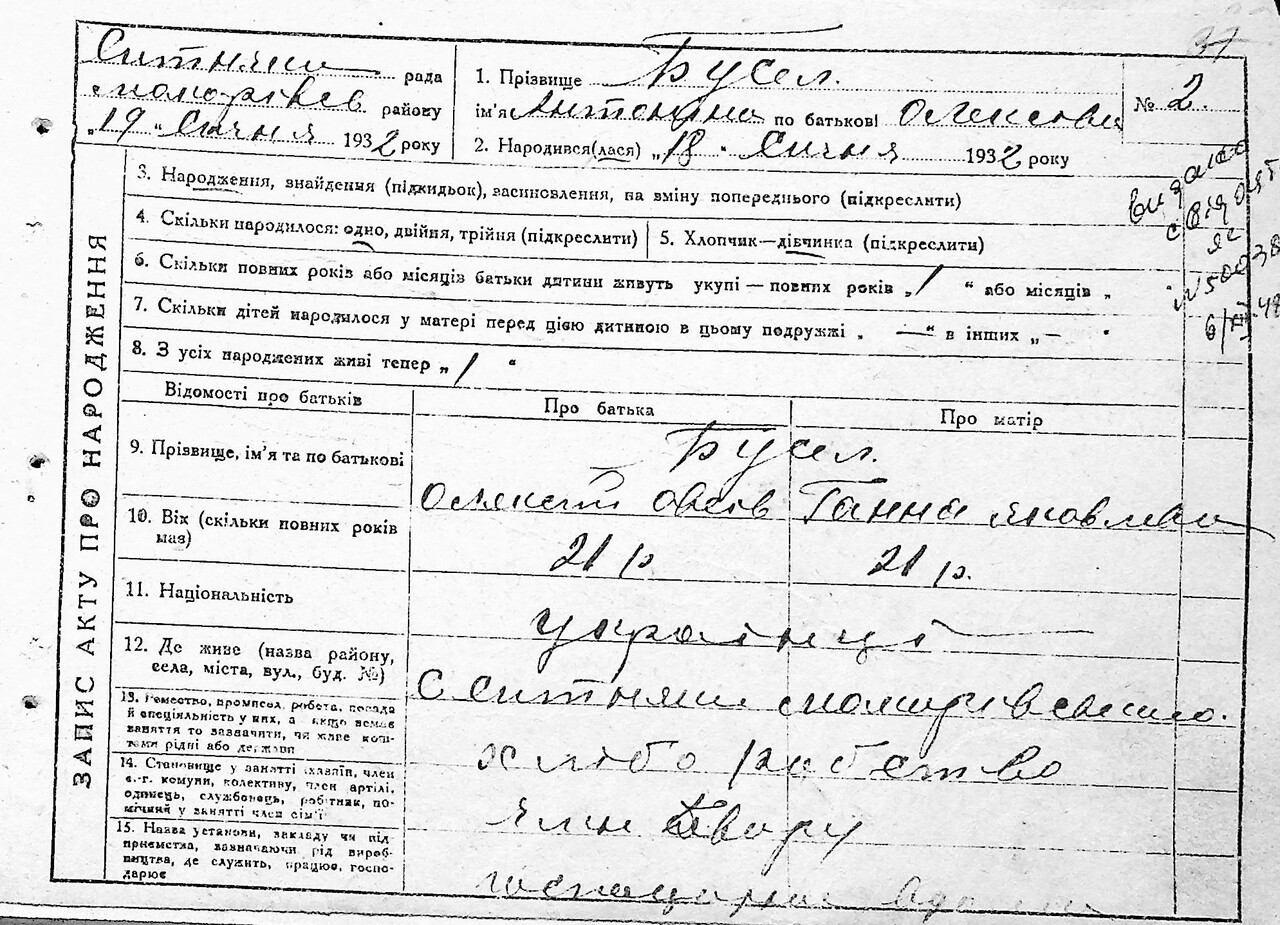 37
Ситняки рада
Макарівсв району
„19 „ Січня 1932 року
1. Прізвище Бусел.
ім'я Антоніна по батькові Олексіївна
2. Народився(лася) „18 „ Січня 1932 року
№ 2.
видано
свідоцт
ЗАПИС АКТУ ПРО НАРОДЖЕННЯ
3. Народження, знайдення (підкидьок), васиновлення, на зміну попереднього (підкреслити)
4. Скільки народилося: одно, двійня, трійня (підкреслити)
5. Хлопчик—дівчинка (підкреслити)
6. Скільки повних років або місяців батьки дитини живуть укупі — повних років „ 1 “ або місяців „
7. Скільки дітей народилося у матері перед цією дитиною в цьому подружжі „ —“ в інших „ —
8. З усіх народжених живі тепер „ 1 “
Відомості про батьків
Про батька
Про матір
9. Прізвище, ім'я та по батькові
Бусел.
Олексій Овсів
Ганна Яковлівна
10. Вік (скільки повних років
має)
21 р.
21 р.
11. Національність
українці
12. Де живе (назва району,
села, міста, вул., буд. №)
С Ситняки Макарівського.
13. Ремество, промисел, робота, посада
й спеціяльність у них, а якщо немає
заняття то зазначити, чи живе кош-
тами рідні або держави
хліборобство
14. Становище у занятті (хазяїн, член
с.-г. комуни, колективу, член артілі,
одинець, службовець, робітник, по-
мічний у занятті член сім'ї)
член двору
15. Назва установи, закладу чи під
приємства, зазначаючи рід вироб-
ництва, де служить, працює, госпо-
дарює